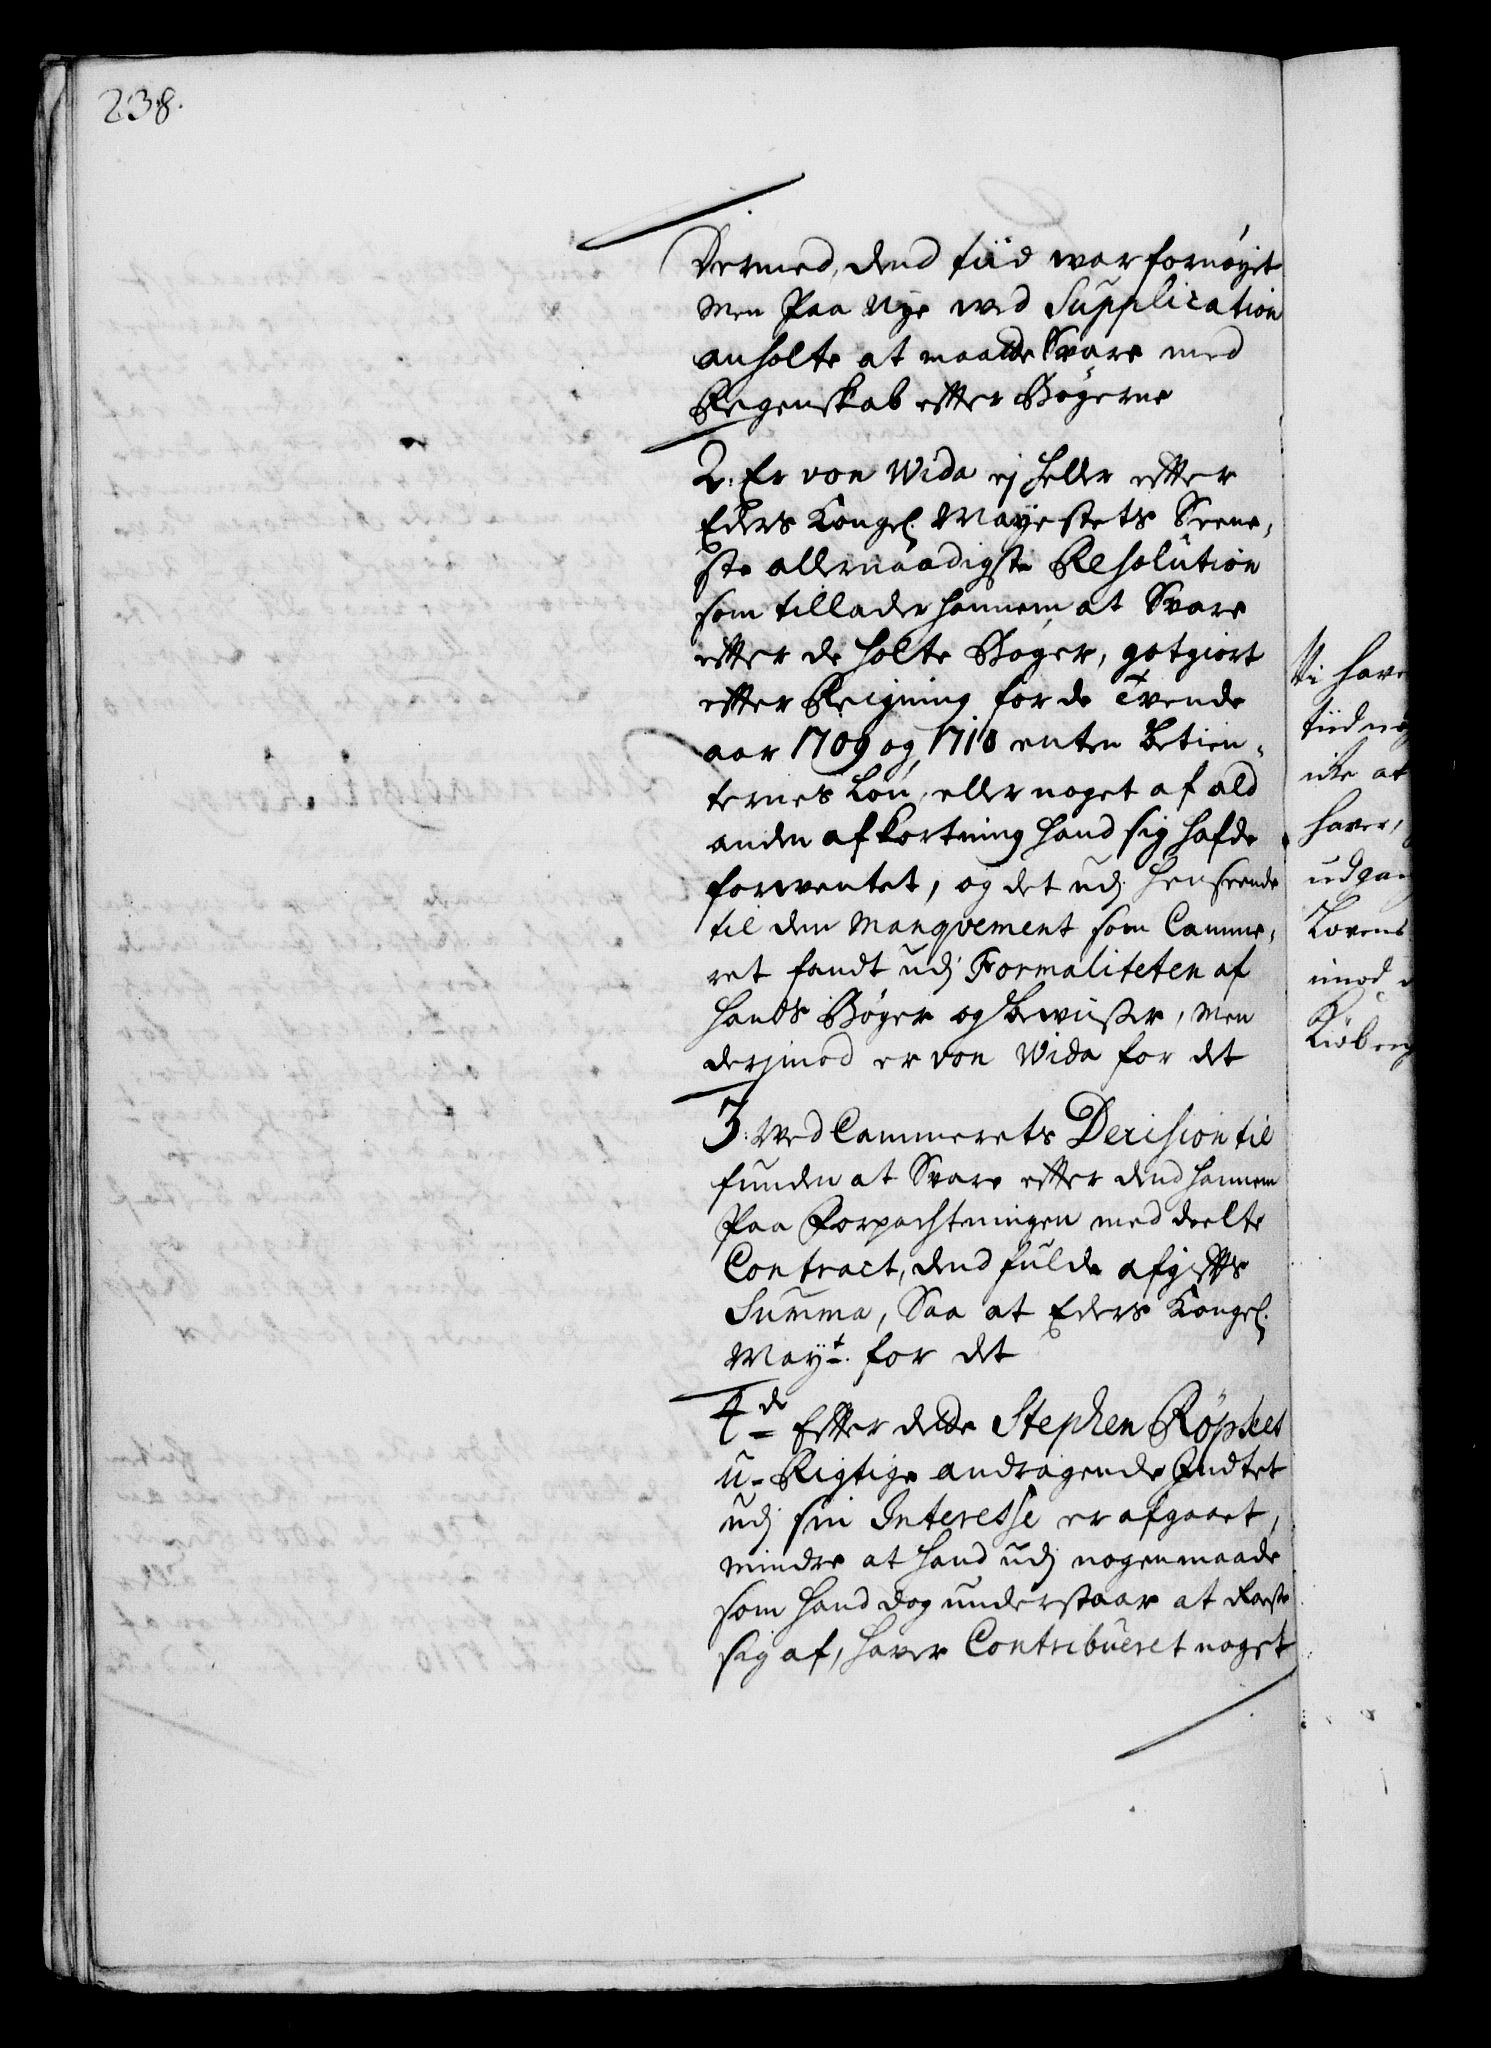 238.
Dermed, dend tiid war fornøyet
Men Paa Nye wed Supplication
anholte at maatte Svare med
Regenskab efter Bøgerne
2. Er von Wida ej heller efter
Eders Kongel. Mayestets Seene,
ste allernaadigste Resolution
som tillader hannem, at Svare
efter de holte Bøger, gotgiort
efter Reigning for de Tvende
aar 1709 og 1710 enten betien,
ternes Løn, eller noget af ald
anden afkortning hand sig hafde
forventet, og det udj henseende
til den Manqvement som Camme,
ret fandt udj Formaliteten af
hands Bøger og bewiiser, Men
derjmod er von Wida for det
3. Wed Cammerets Decision til
funden at Svare efter dend hannem
Paa Forpachtningen med deelte
Contract, dend fulde afgifts
Summa, Saa at Eders Kongel.
Mayt. for det
4de Efter dette Stephen Röpkes
u-Rigtige andragende Jndtet
udj sin Interesse er afgaaet,
mindre at hand udj nogen maade
som hand dog understaar at Roese
sig af, haver Contribueret noget
Vi have
tiid
ike at
haver,
udgan
Lovens
imod
Kiøben